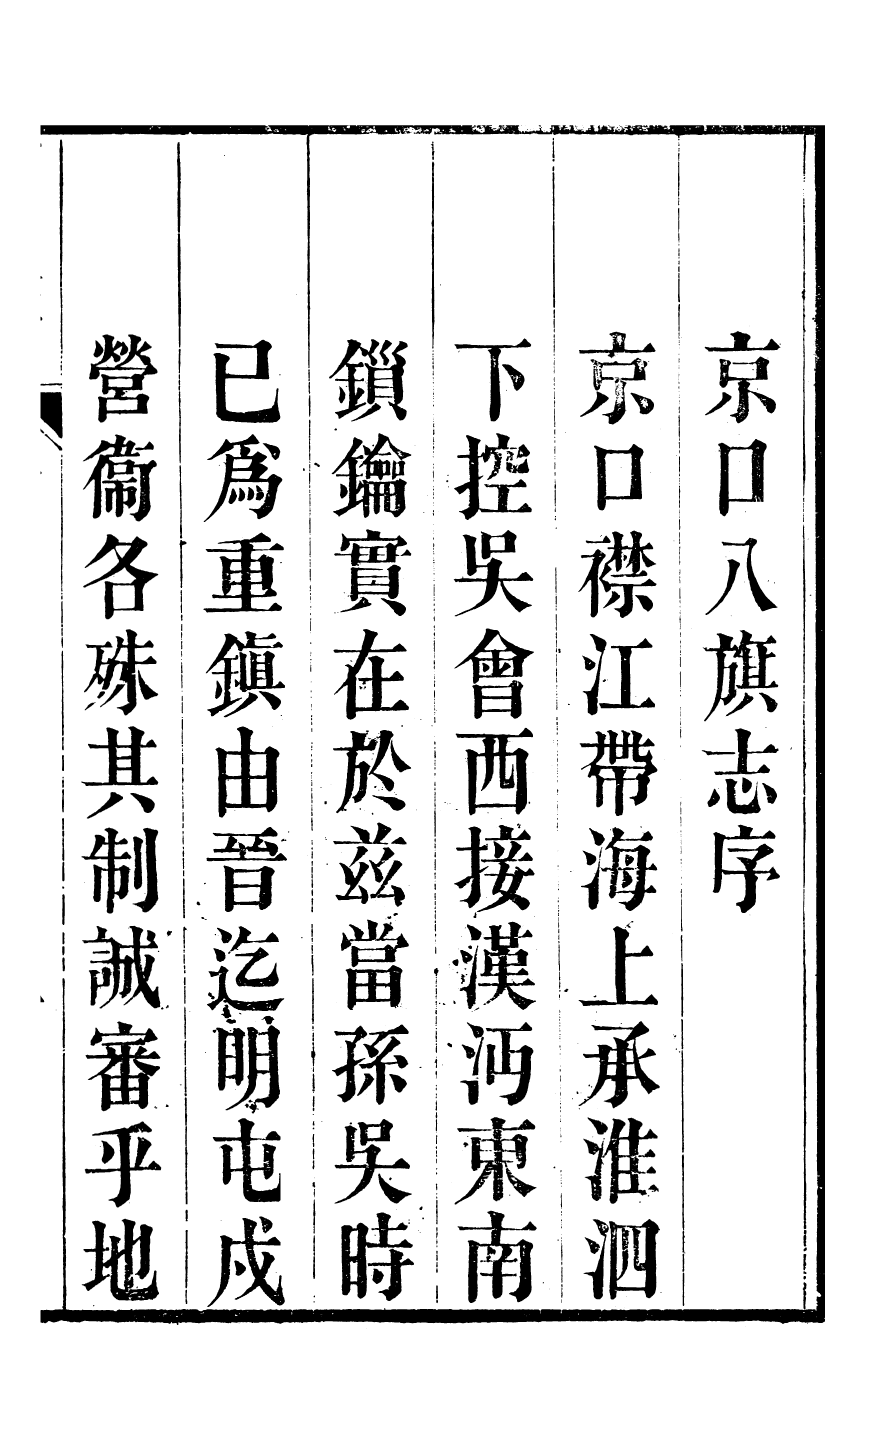 京口八旗志序
京口襟江帶海上承淮泗
下控吳會西接漢沔東南
鎻鑰實在於兹當孫吳時
已爲重鎮由晉迄明屯戍
營衞各殊其制誠審乎地